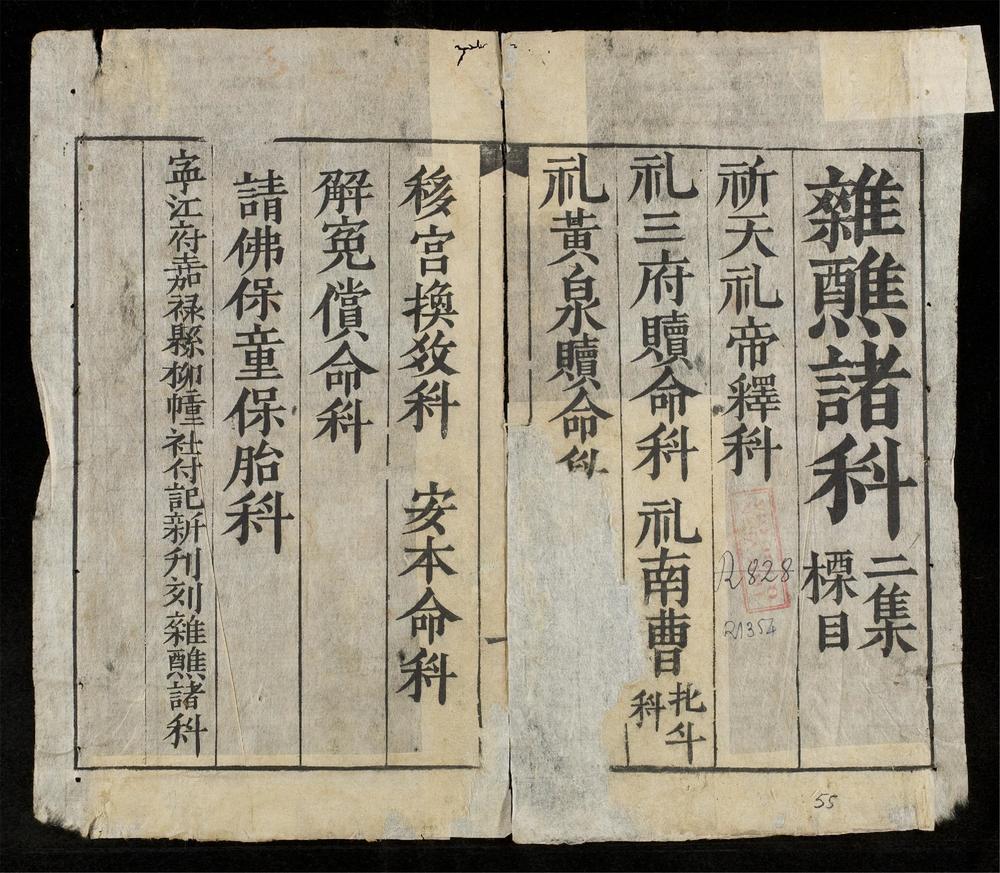 雜醮諸科 二集 標目
祈天礼帝釋科
礼三府贖命科 礼南曹北斗科
礼黃泉贖命科
移宮換数科 安本命科
解冤償命科
請佛保童保胎科
寕江府嘉禄縣柳幢社付記新刋刻雜醮諸科
R828
R1354
55